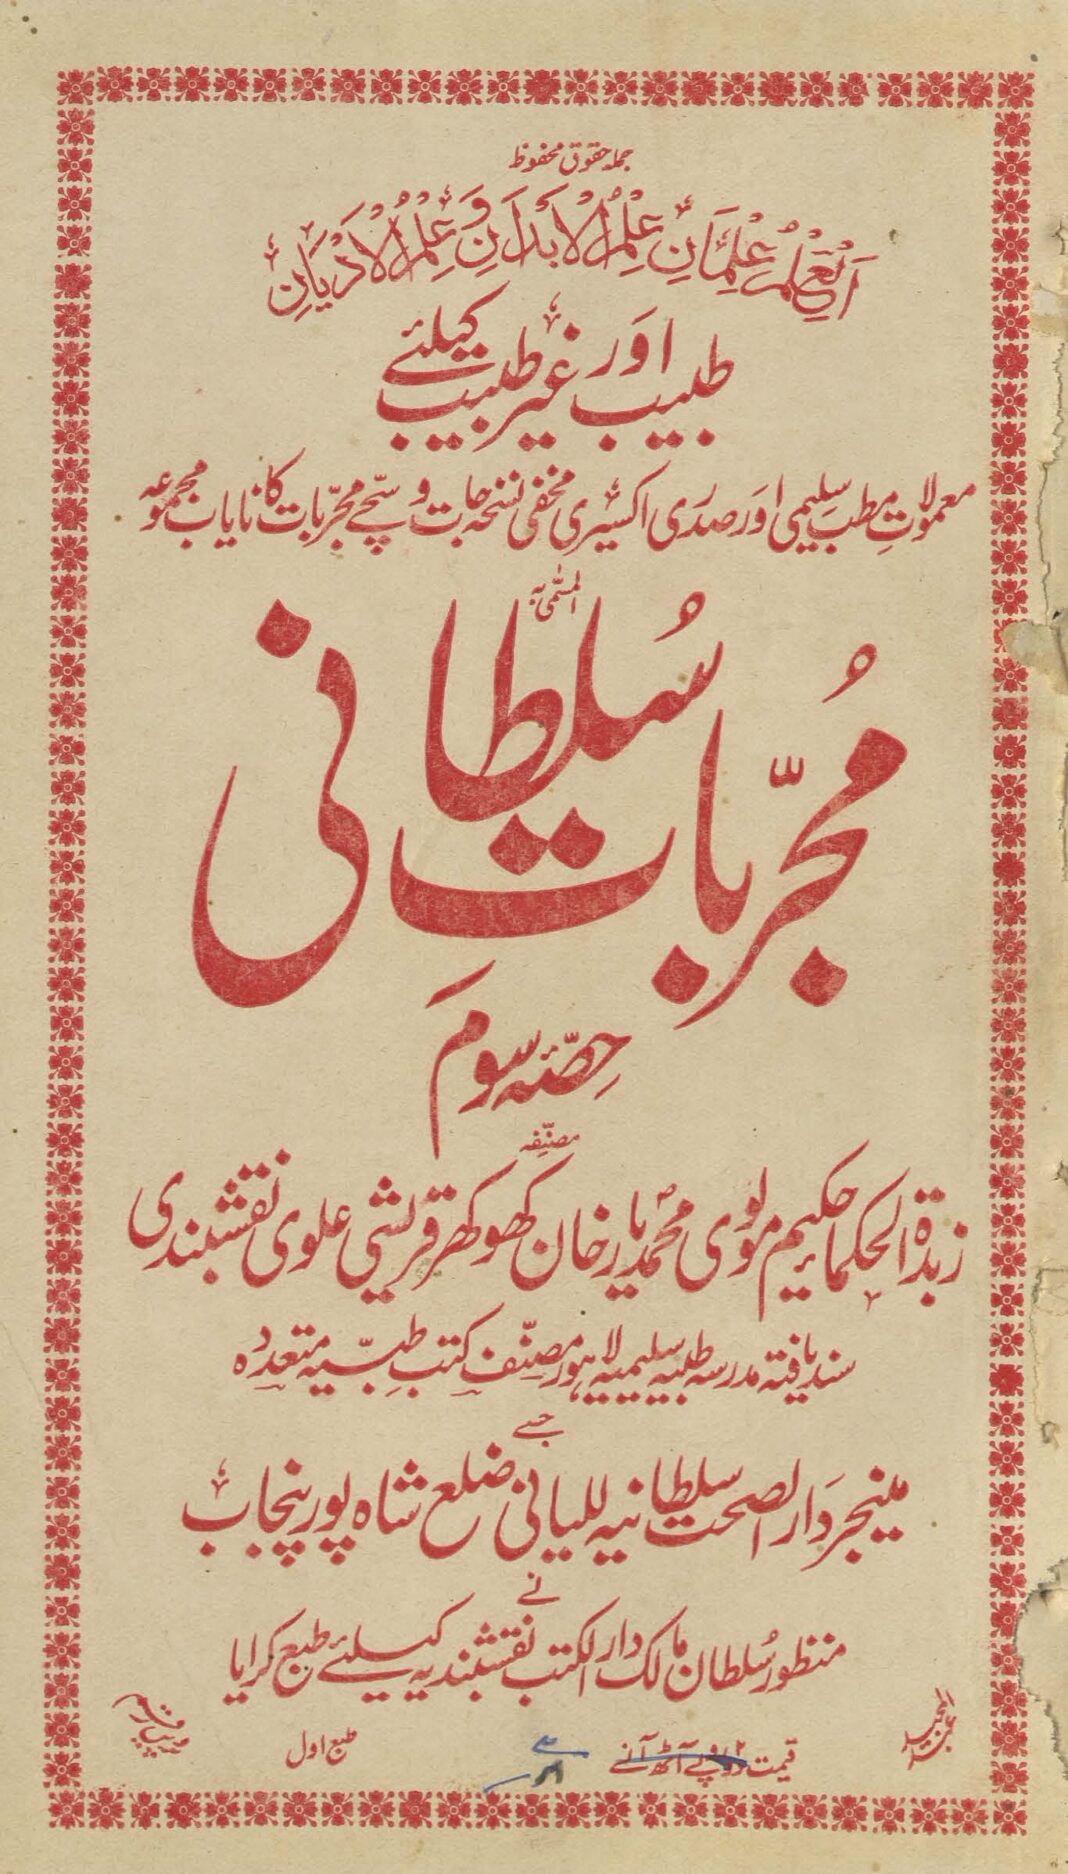 جملہ حقوق محفوظ
اَلْعِلْمُ عِلْمَانِ عِلْمُ الْاَبْدَانِ وَ عِلْمُ الْاَدْيَانِ
طبیب اور غیر طبیب کیلئے
معمولاتِ مطب سلیمی اور صدری اکسیری مخفی نسخہ جات و سچے مجرّبات کا نایاب مجموعہ
المسمّٰی بہ
مُجرّباتِ سُلطانی
حِصّہ سوم
مصنّفہ
زبدۃ الحکما حکیم مولوی محمد یار خان کھوکھر قریشی علوی نقشبندی
سند یافتہ مدرسہ طبیہ سلیمیہ لاہور مصنّف کتب طبّیہ متعددہ
جسے
مینیجر دار الصحت سلطانیہ للیانی ضلع شاہ پور پنجاب
نے
منظور سُلطان مالک دار الکتب نقشبندیہ کیلئے طبع کرایا
عبد المجید
قیمت ۲ روپے آٹھ آنے
طبع اول